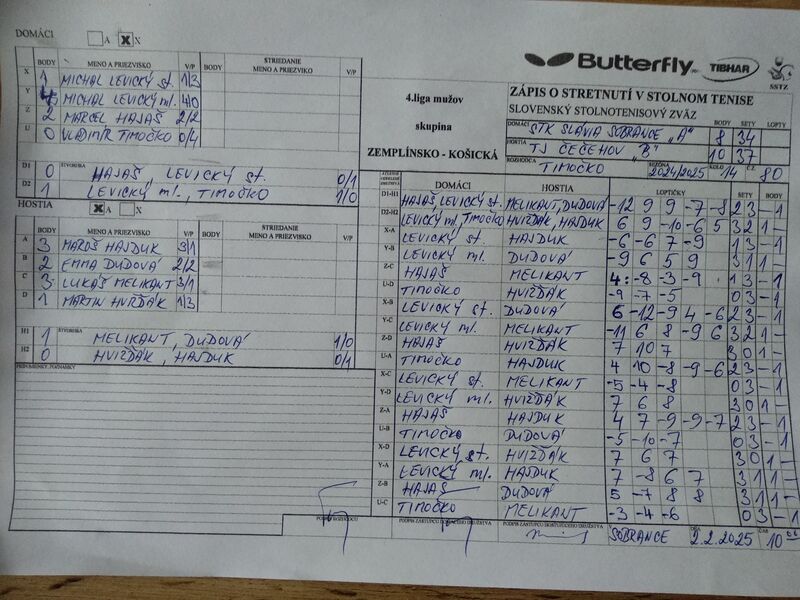 DOMÁCI A X X
Butterfly TIBHAR SSTZ
BODY MENO A PRIEZVISKO V/P BODY STRIEDANIE MENO A PRIEZVISKO V/P
X 1 MICHAL LEVICKÝ st. 1/3
Y 4 MICHAL LEVICKÝ ml. 4/0
Z 2 MARCEL HAJAŠ 2/2
U 0 VLADIMÍR TIMOČKO 0/4
ŠTVORHRA
D1 0 HAJAŠ, LEVICKÝ st. 0/1
D2 1 LEVICKÝ ml., TIMOČKO 1/0
4.liga mužov
skupina
ZEMPLÍNSKO - KOŠICKÁ
ZÁPIS O STRETNUTÍ V STOLNOM TENISE
SLOVENSKÝ STOLNOTENISOVÝ ZVÄZ
DOMÁCI BODY SETY LOPTY
STK SLÁVIA SOBRANCE "A" 8 34
HOSTIA
TJ ČEČEHOV "B" 10 37
ROZHODCA SEZÓNA KOLO Č.Z.
TIMOČKO 2024/2025 14 80
HOSTIA X X
BODY MENO A PRIEZVISKO V/P BODY STRIEDANIE MENO A PRIEZVISKO V/P
A 3 MAROŠ HAJDUK 3/1
B 2 EMMA DUDOVÁ 2/2
C 3 LUKÁŠ MELIKANT 3/1
D 1 MARTIN HVIŽĎÁK 1/3
ŠTVORHRA
H1 1 MELIKANT, DUDOVÁ 1/0
H2 0 HVIŽĎÁK, HAJDUK 0/1
PRIPOMIENKY, POZNÁMKY
DOMÁCI HOSTIA LOPTIČKY SETY BODY
D1-H1 HAJAŠ LEVICKÝ st. MELIKANT, DUDOVÁ -12 9 9 -7 -8 2 3 - 1
D2-H2 LEVICKÝ ml. TIMOČKO HVIŽĎÁK, HAJDUK 6 9 -10 -6 5 3 2 1 -
X-A LEVICKÝ st. HAJDUK -6 -6 7 -9 1 3 - 1
Y-B LEVICKÝ ml. DUDOVÁ -9 6 5 9 3 1 1 -
Z-C HAJAŠ MELIKANT 4 -8 -3 -9 1 3 - 1
U-D TIMOČKO HVIŽĎÁK -9 -7 -5 0 3 - 1
X-B LEVICKÝ st. DUDOVÁ 6 -12 -9 4 -6 2 3 - 1
Y-C LEVICKÝ ml. MELIKANT -11 6 8 -9 6 3 2 1 -
Z-D HAJAŠ HVIŽĎÁK 7 10 7 3 0 1 -
U-A TIMOČKO HAJDUK 4 10 -8 -9 -6 2 3 - 1
X-C LEVICKÝ st. MELIKANT -5 -4 -8 0 3 - 1
Y-D LEVICKÝ ml. HVIŽĎÁK 7 6 8 3 0 1 -
Z-A HAJAŠ HAJDUK 4 7 -9 -9 -7 2 3 - 1
U-B TIMOČKO DUDOVÁ -5 -10 -7 0 3 - 1
X-D LEVICKÝ st. HVIŽĎÁK 7 6 7 3 0 1 -
Y-A LEVICKÝ ml. HAJDUK 7 -8 6 7 3 1 1 -
Z-B HAJAŠ DUDOVÁ 5 -7 8 8 3 1 1 -
U-C TIMOČKO MELIKANT -3 -4 -6 0 3 - 1
PODPIS ROZHODCU PODPIS ZÁSTUPCU DOMÁCEHO DRUŽSTVA PODPIS ZÁSTUPCU HOSŤUJÚCEHO DRUŽSTVA
SOBRANCE DŇA 2.2.2025 ČAS 10 00